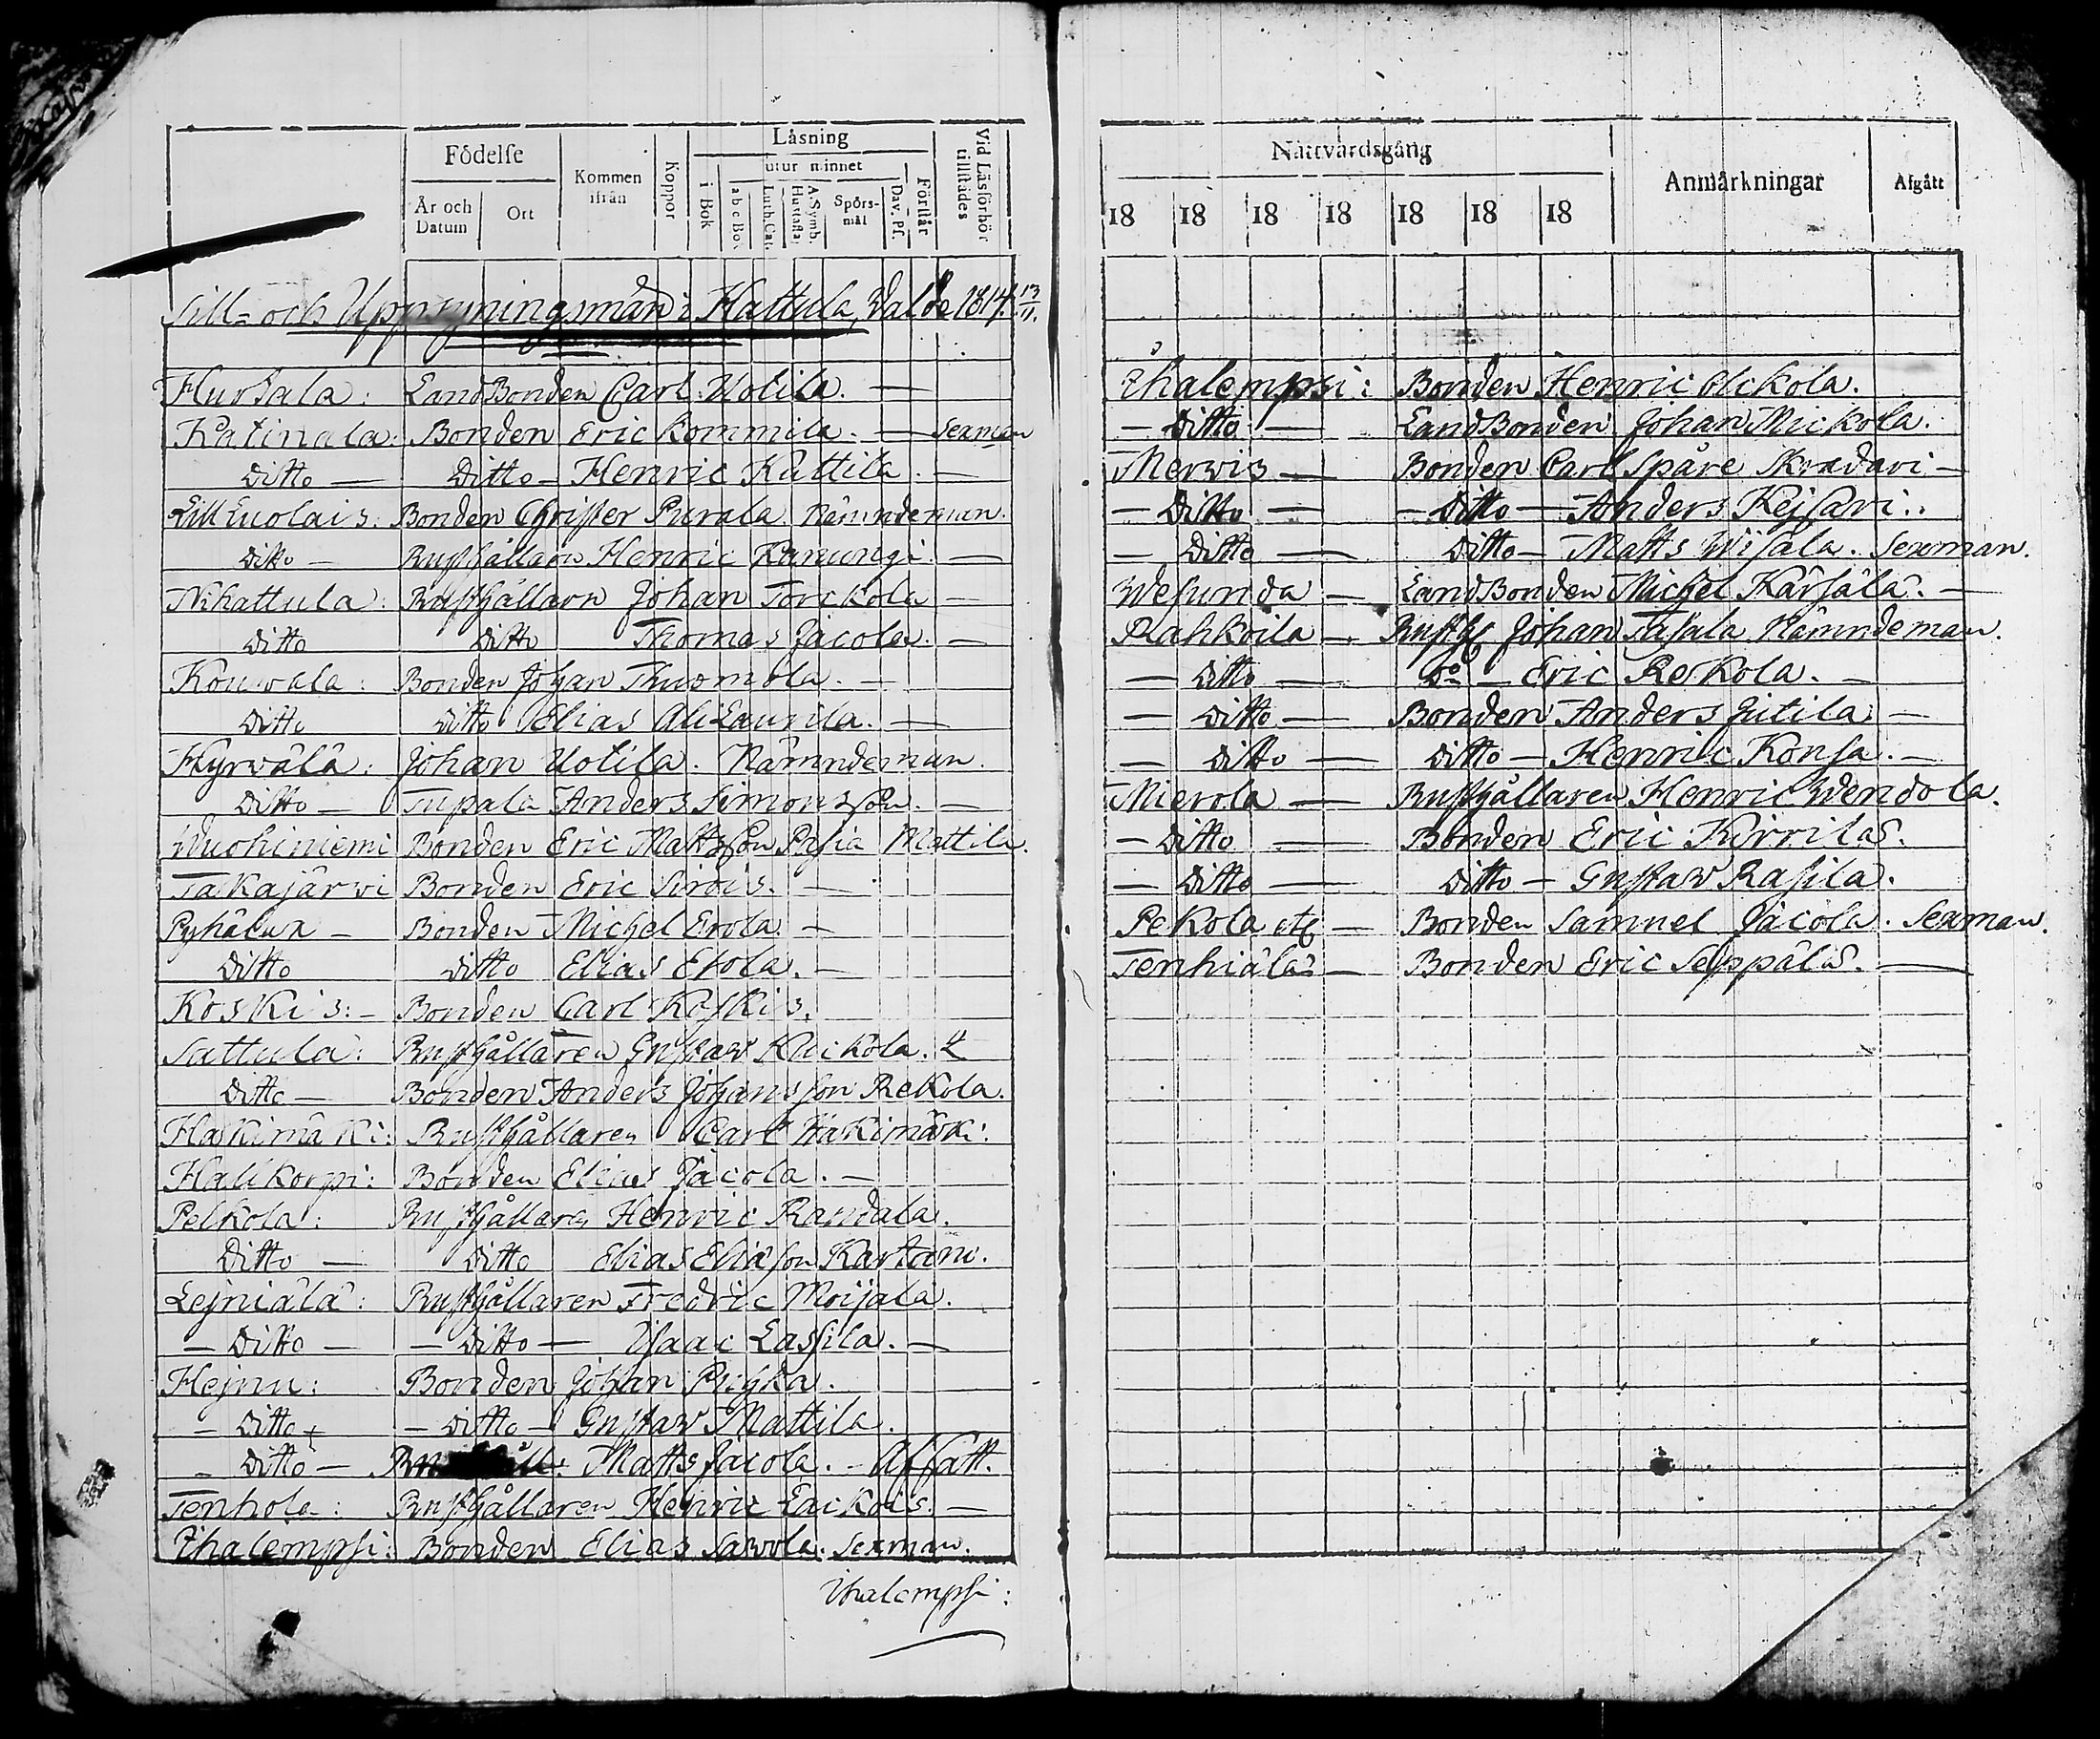 Födelse
Kommen ifrån
Koppor
Läsning
utur minnet
Vid Läsförhör tillstädes
År och Datum
Ort
i Bok
a b c Bok
Luth. Cat.
A. Symb. Hustafla
Spörsmål
Dav. Ps.
Förstår
Till- och Uppsyningsmän i Hattula, valde 1814 13/11.
Hurtala: LandBonden Carl Uotila. —
Katinala: Bonden Eric Kommila. — Sexman
Ditto — Ditto — Henric Kattila. —
Lill Luolais: Bonden Christer Purala Nämndeman.
Ditto — Rusthållarn Henric Ranungi. —
Nihattula: Rusthållarn Johan Torckola —
Ditto Ditto Thomas Jacola. —
Kouvala: Bonden Johan Thuomola. —
Ditto Ditto Elias AliLaurila. —
Hyrvälä: Johan Uotila. Nämndeman.
Ditto — Tupala Anders Simonsson. —
Wuohiniemi Bonden Eric Mattsson Pasia Mattila.
Takajärwi Bonden Eric Sirois. —
Pyhälux — Bonden Michel Erola —
Ditto Ditto Elias Erola. —
Koskis: — Bonden Carl Koskis.
Sattula: Rusthållaren Gustaw Kuckola.
Ditto — Bonden Anders Johansson Rekola.
Hakimäki: Rusthållaren Carl Hakimäki.
Halikorpi: Bonden Elias Jacola. —
Pelkola: Rusthållarn Henric Randala.
Ditto — Ditto Elias Eliasson Kartano.
Lejniälä: Rusthållaren Fredric Moijala.
— Ditto — — Ditto — Isaac Lassila. —
Hejnu: Bonden Johan Pryhta.
— Ditto — Ditto — Gustaw Mattila.
— Ditto — Matts Jacola. — Afsatt.
Tenhola: Rusthållaren Henric Lackois. —
Ihalempsi: Bonden Elias Sawola. Sexman.
Ihalempsi:
Nattvardsgång
Anmärkningar
Afgått
18 18 18 18 18 18 18
Ihalempsi: Bonden Henric Olckola.
— Ditto — LandBonden Johan Mickola.
Merwis — Bonden Carl Spåre Skradari —
— Ditto — — Ditto — Anders Kejsari.
— Ditto — Ditto — Matts Wisala. Sexman.
Wesunda — LandBonden Michel Kärsälä. —
Rahkoila — Rusth Johan Tasala Nämndeman.
— Ditto — Do — Eric Reskola. —
— Ditto — Bonden Anders Jutila —
— Ditto — Ditto — Henric Konsa. —
Mierola — Rusthållaren Henric Wendola.
— Ditto — Bonden Eric Kirrilä.
— Ditto — Ditto — Gustaw Rasila.
Pekola — Bonden Samuel Jacola. Sexman.
Tenhiälä — Bonden Eric Seppälä. —